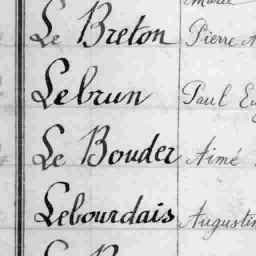 Le Breton Pierre
Lebrun Paul
Le Bouder Aimé
Lebourdais Augustin